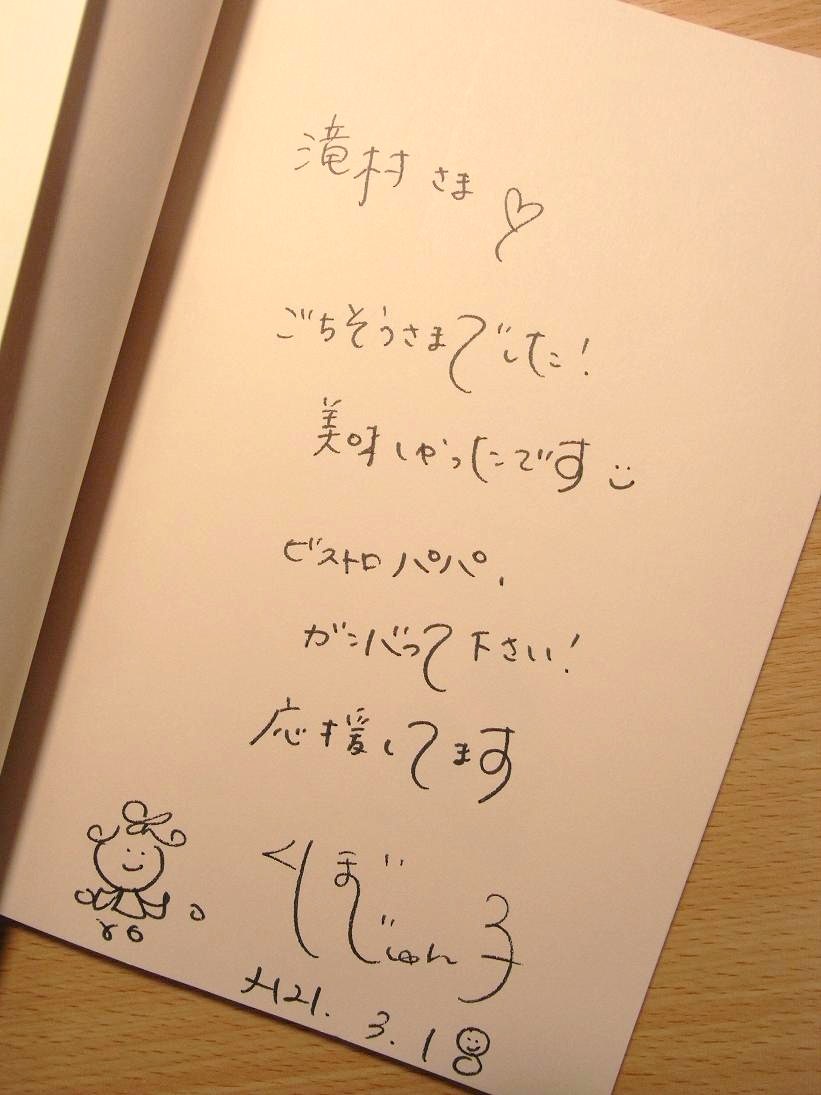 滝村さま
ごちそうさまでした!
美味しかったです
ビストロパパ、
ガンバって下さい!
応援してます
くぼじゅん子
H21. 3. 18